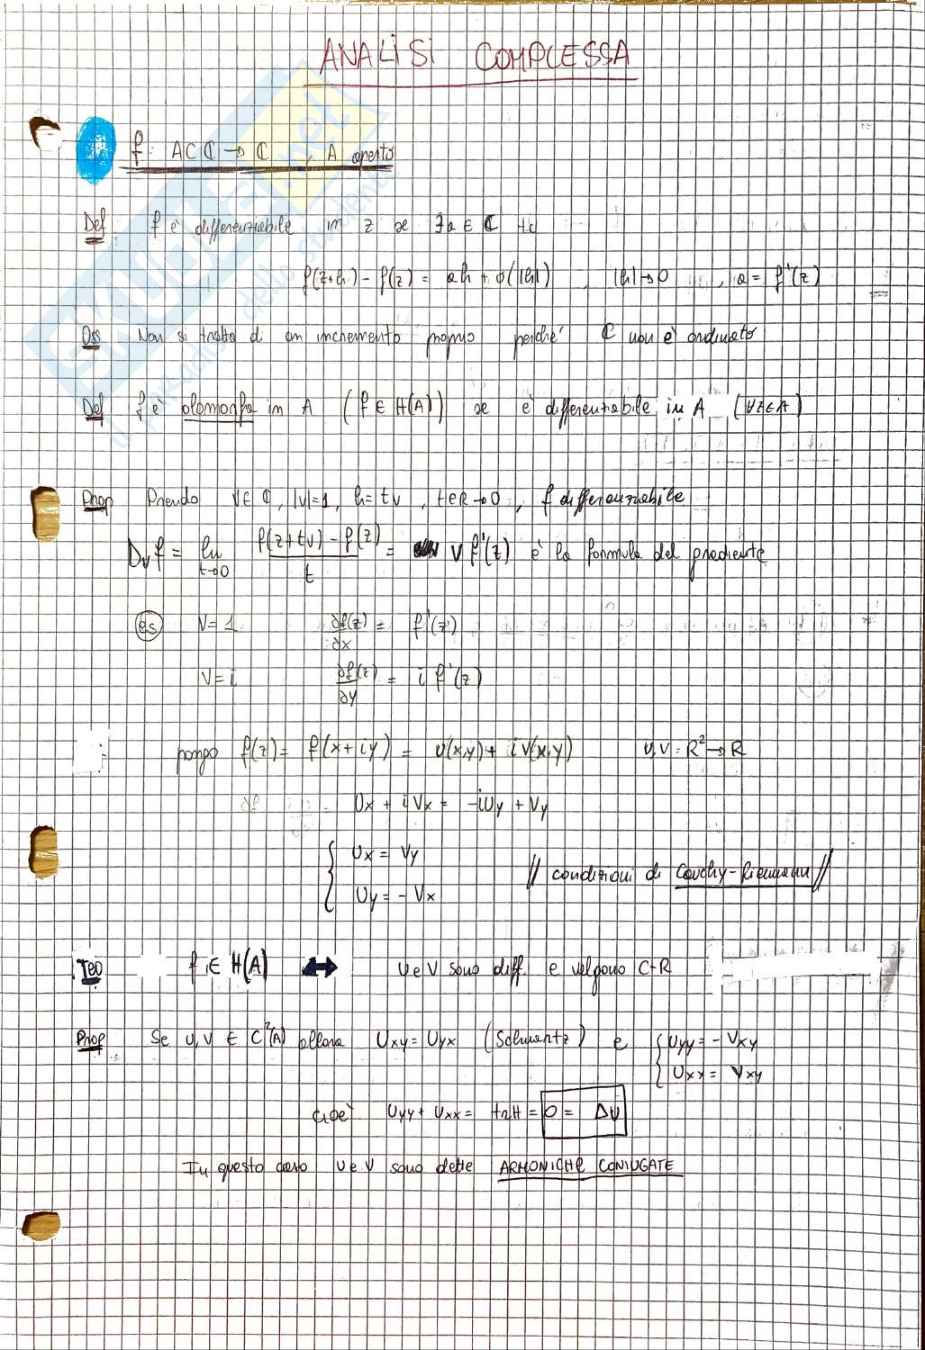 ANALISI COMPLESSA
f: A⊂ℂ → ℂ , A aperto
Def f è differenziabile in z se ∃a∈ℂ t.c.
f(z+h) - f(z) = ah + o(|h|) , |h|→0 , a = f'(z)
Oss Non si tratta di un incremento proprio perché ℂ non è ordinato
Def f è olomorfa in A (f∈H(A)) se è differenziabile in A (∀z∈A)
Prop Prendo v∈ℂ, |v|=1, h=tv, t∈R→0, f differenziabile
Dvf = lim t→0 f(z+tv) - f(z) / t = v f'(z) è la formula del gradiente
es V=1 ∂f(z)/∂x = f'(z)
V=i ∂f(z)/∂y = i f'(z)
pongo f(z) = f(x+iy) = u(x,y) + iv(x,y) u,v: R²→R
Ux + iVx = -iUy + Vy
{ Ux = Vy
Uy = -Vx // condizioni di Cauchy-Riemann //
Teo f∈H(A) ↔ u e v sono diff. e valgono C-R
Prop Se u,v ∈ C²(A) allora Uxy = Uyx (Schwartz) e { Uyy = -Vxy
Uxx = Vxy
cioè Uyy + Uxx = tr H = 0 = Δu
In questo caso u e v sono dette ARMONICHE CONIUGATE